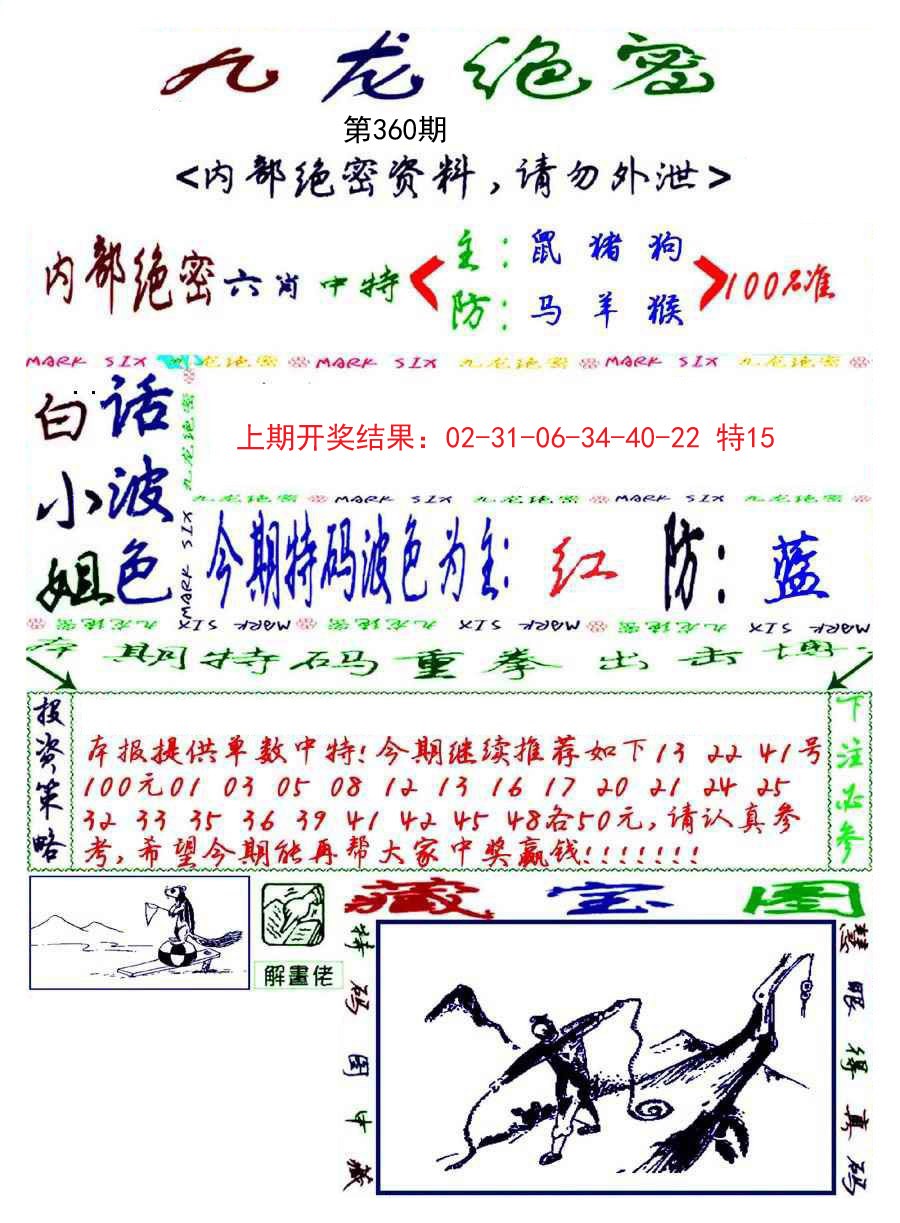 九龙绝密
第360期
<内部绝密资料,请勿外泄>
内部绝密六肖中特
主:鼠猪狗
防:马羊猴
100%准
MARK SIX 九龙绝密 MARK SIX 九龙绝密 MARK SIX 九龙绝密
白话
小波
姐色
九龙绝密
MARK SIX
上期开奖结果：02-31-06-34-40-22 特15
九龙绝密 MARK SIX 九龙绝密 MARK SIX 九龙绝密
今期特码波色为主:红 防:蓝
九龙绝密 MARK SIX 九龙绝密 MARK SIX 九龙绝密 MARK SIX
本期特码重拳出击
投资策略
本报提供单数中特!今期继续推荐如下13 22 41号
100元01 03 05 08 12 13 16 17 20 21 24 25
32 33 35 36 39 41 42 45 48各50元,请认真参
考,希望今期能再帮大家中奖赢钱!!!!!!!
下注必参
解畫佬
藏宝图
特码图中藏
慧眼得真码